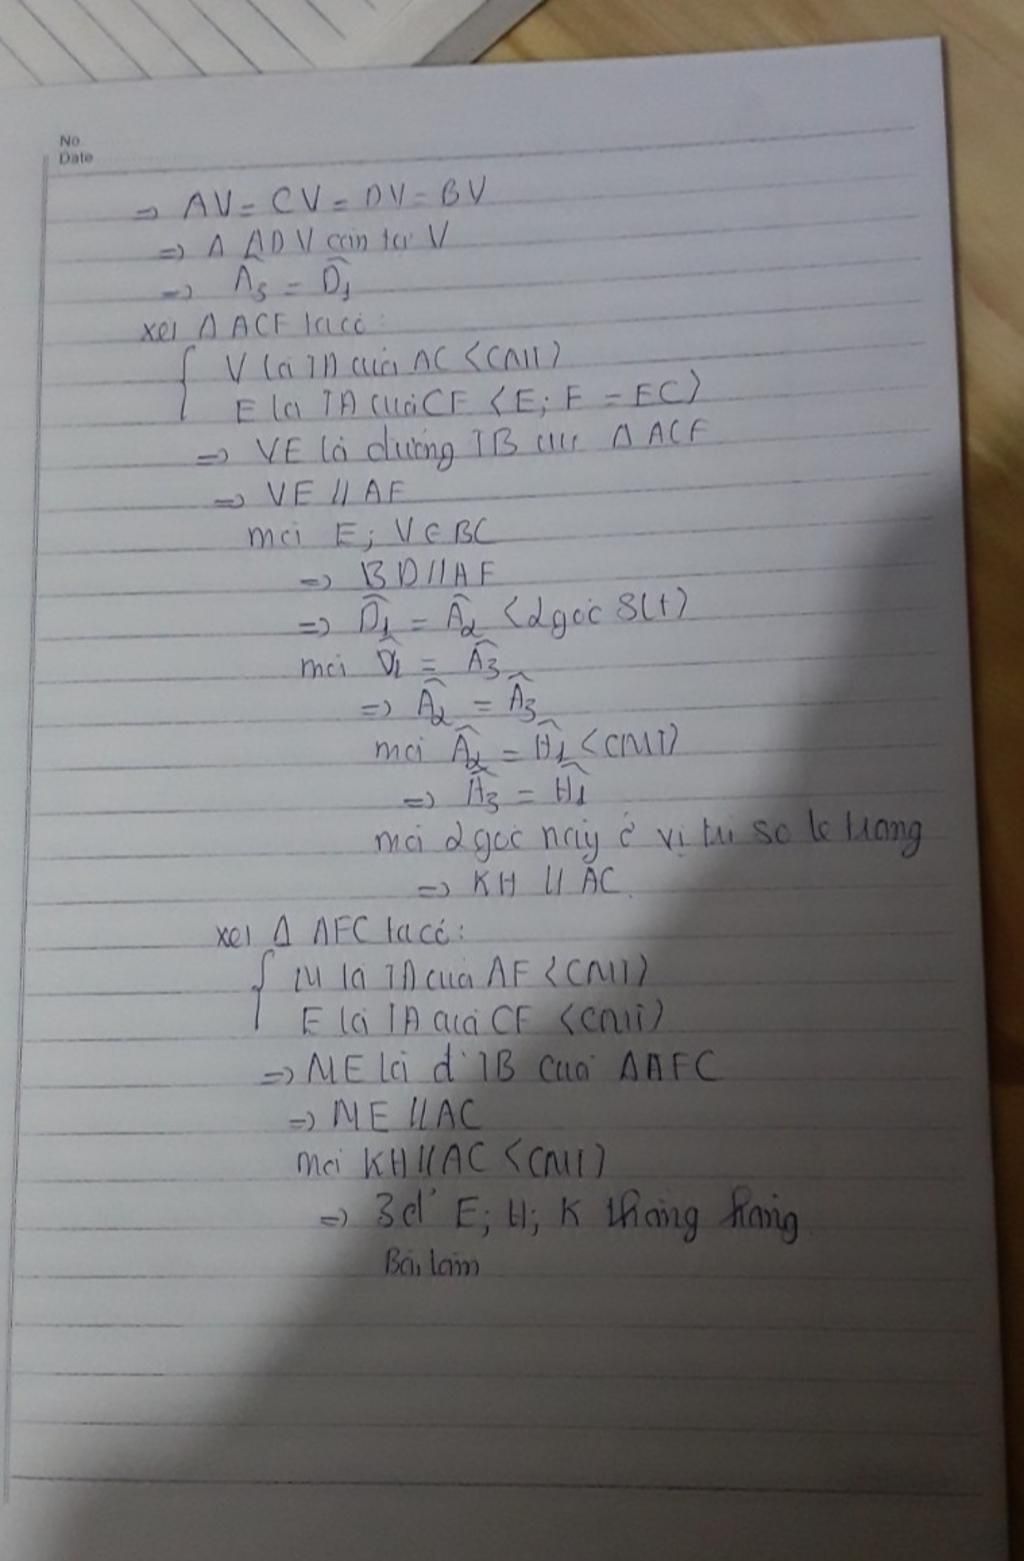 No
Date
=> AV = CV = DV = BV
=> Δ ADV cân tại V
=> Â3 = D̂1
xét Δ ACF ta có:
{ V là TĐ của AC <CMT>
E là TĐ của CF <E; F = EC>
=> VE là đường TB của Δ ACF
=> VE // AF
mà E; V ∈ BC
=> BD // AF
=> D̂1 = Â2 <2 góc SLT>
mà D̂1 = Â3
=> Â2 = Â3
mà Â2 = Ĥ1 <CMT>
=> Â3 = Ĥ1
mà 2 góc này ở vị trí so le trong
=> KH // AC.
xét Δ AFC ta có:
{ M là TĐ của AF <CMT>
E là TĐ của CF <CMT>
=> ME là đ' TB của Δ AFC
=> ME // AC
mà KH // AC <CMT>
=> 3 đ' E; H; K thẳng hàng
Bài làm